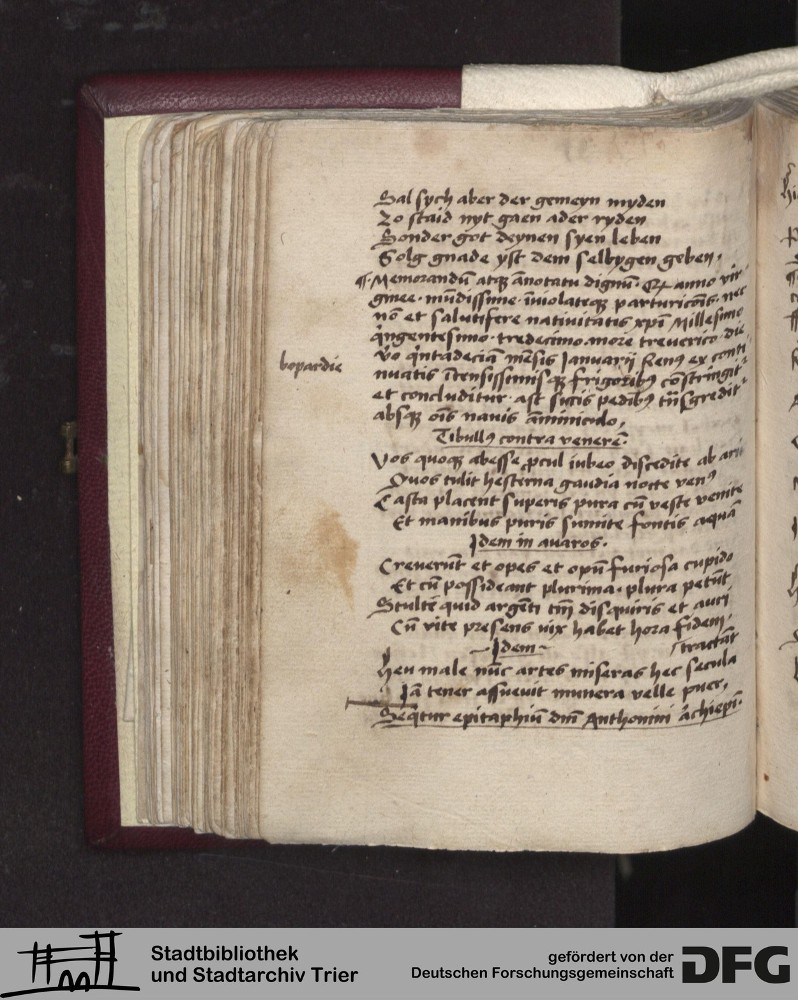 Sal sych aber der gemeyn myden
Zo staid nyt gaen ader ryden
Sonder got deynen syen leben
Solg gnade yst dem selbygen geben.
¶ Memorandū atqꝫ ānotatu dignū. anno vir
ginee. mūdissime. īuiolateqꝫ parturicōis. nec
nō et salutifere natiuitatis xpī Millesimo
qͥngentesimo. tredecimo. more treverico. die
v̊o qͥntadecia mēsis Januarij Renꝰ ex conti
bopardie
nuatis ītensissimisqꝫ frigoribꝰ cōstringit᷑
et concluditur. ast siccis pedibꝰ
absqꝫ oīs nauis āminiculo,
Tibullꝰ contra venerē.
Vos quoqꝫ abesse ꝓcul iubeo discedite ab aris
Quos tulit hesterna gaudia nocte venꝰ
Casta placent superis pura cū veste venite
Et manibus puris sumite fontis aquā
Idem in avaros.
Creverūt et opes et opū furiosa cupido
Et cū possideant plurima. plura petūt
Stulte quid argēti disquiris et auri
Cū vite presens vix habet hora fidem.
Idem
tractāt
Heu male nūc artes miseras hec secula
Iā tener assuevit munera velle puer,
Seqͥtur epitaphiū dnī Anthonini achiepī.
Stadtbibliothek
und Stadtarchiv Trier
gefördert von der
Deutschen Forschungsgemeinschaft
DFG